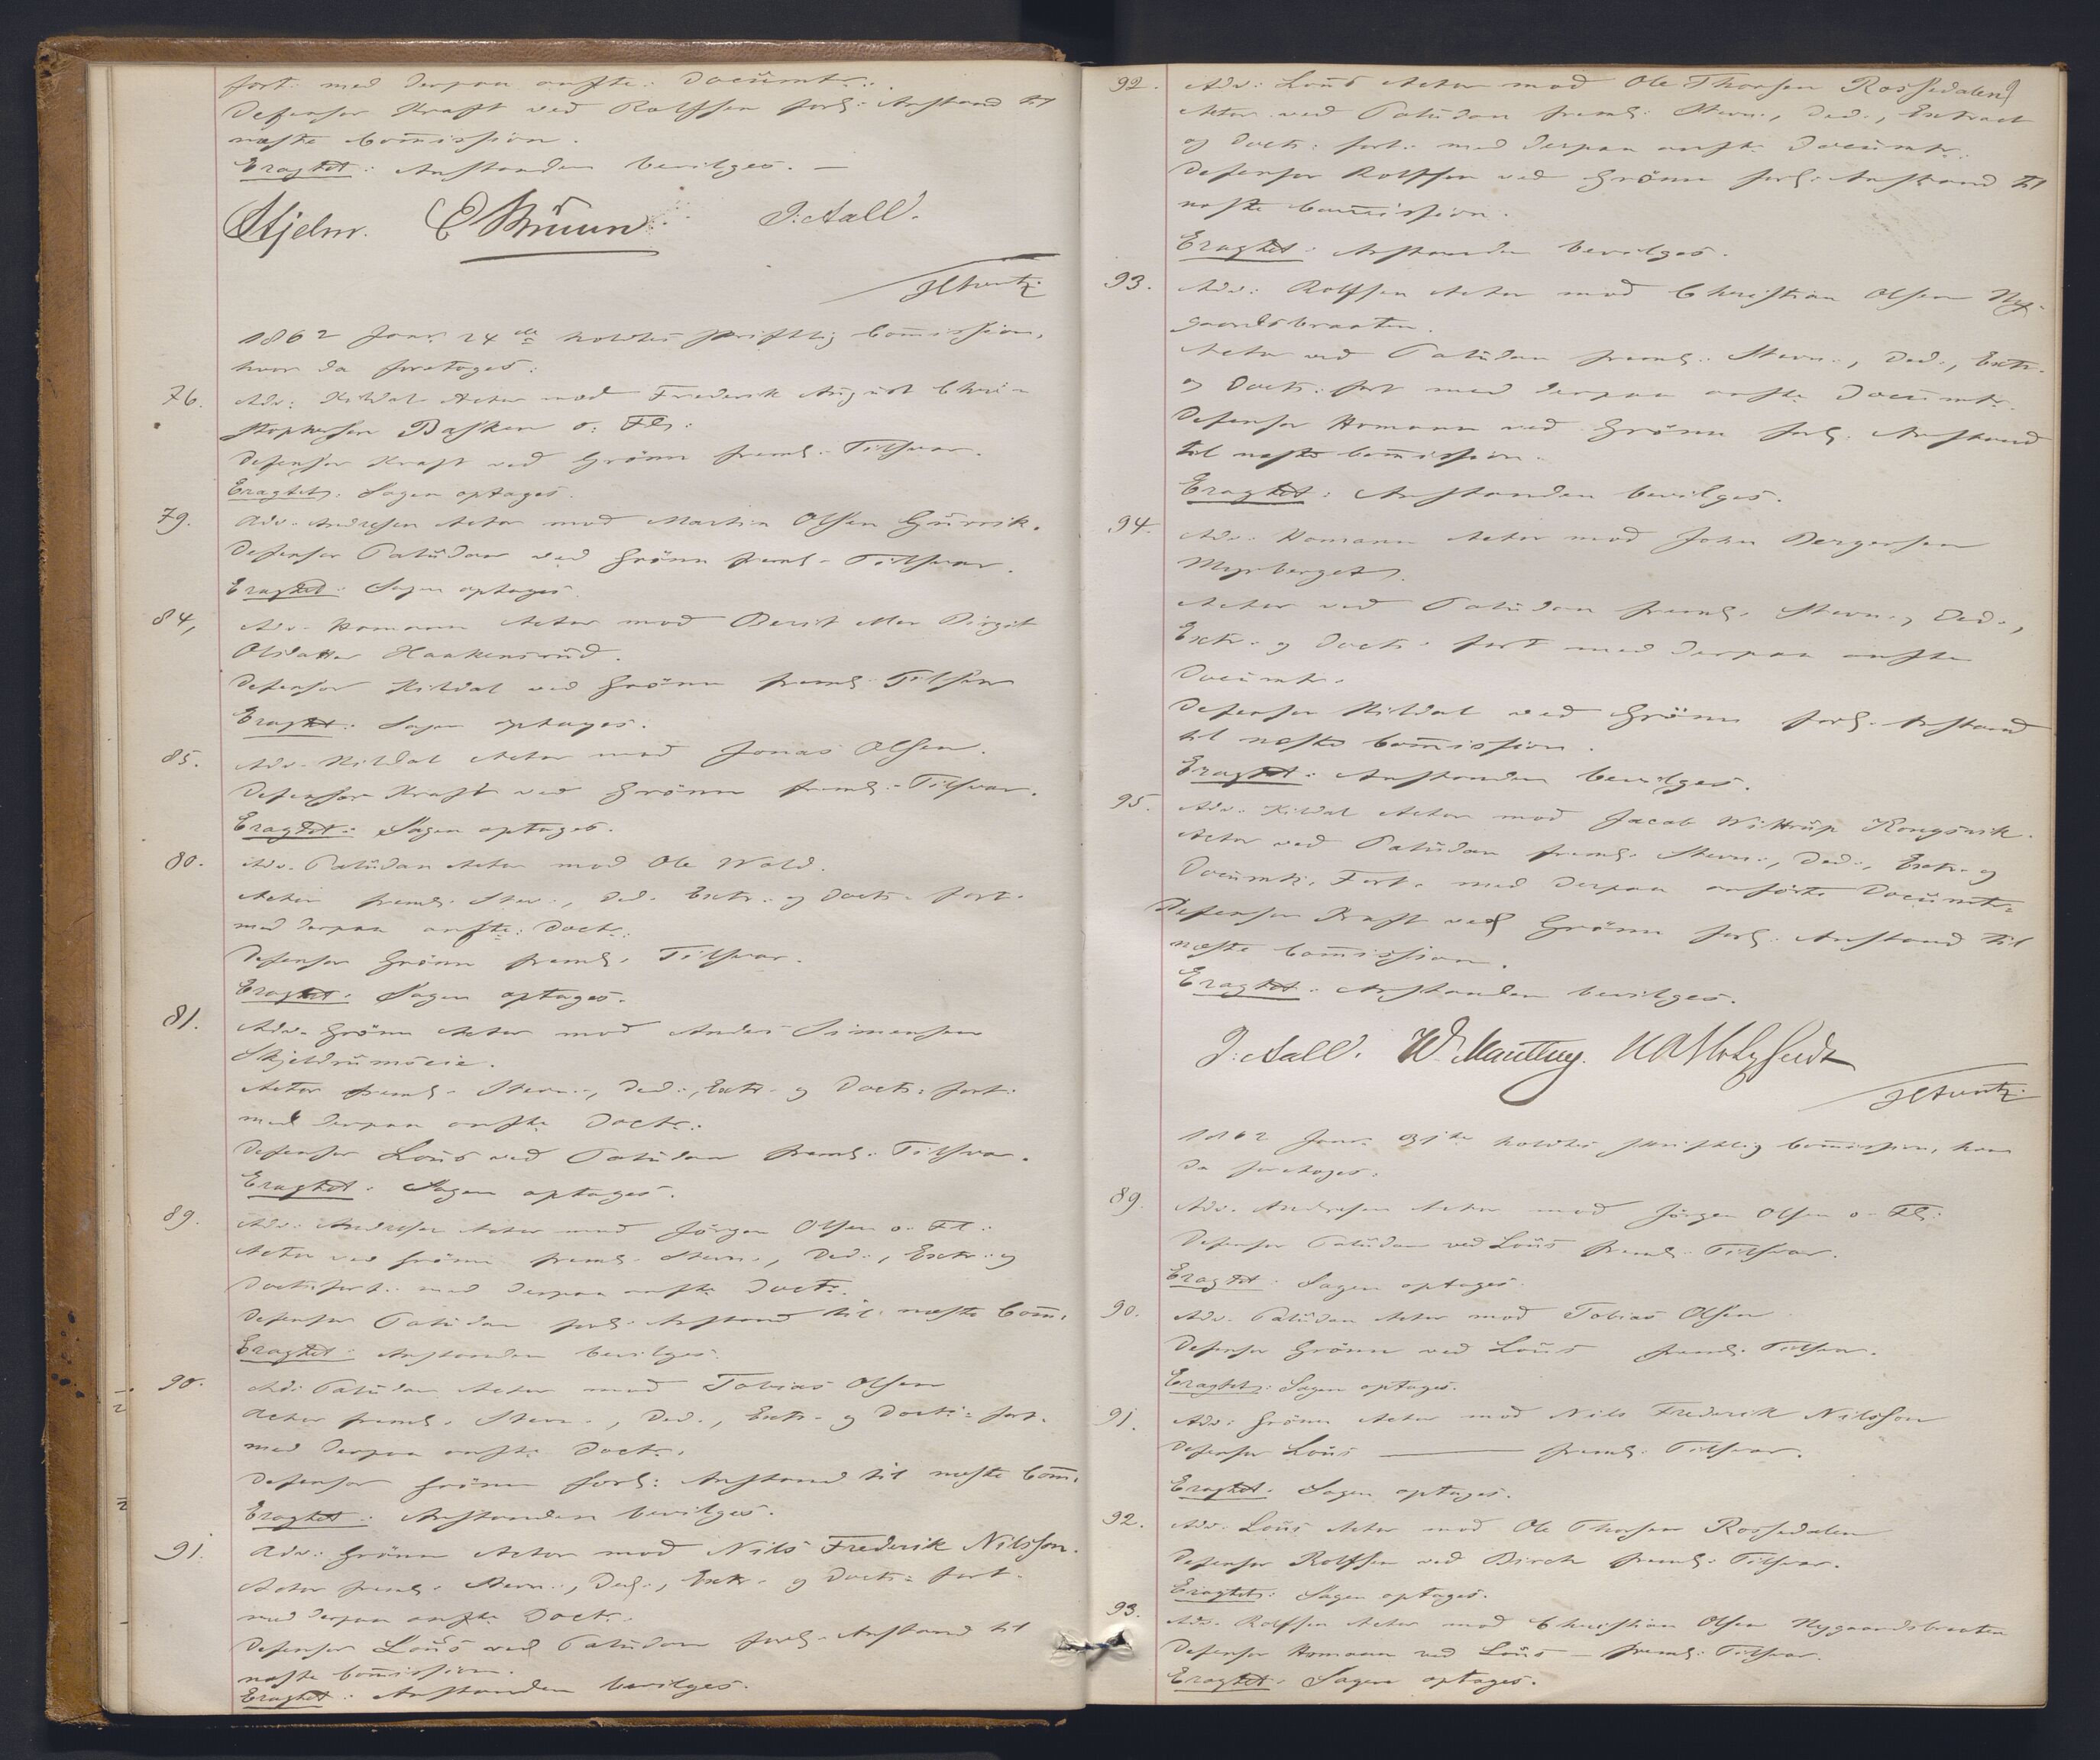 fort. med derpaa anførte: Documtr.
Defensor Kraft ved Rolffsen forl: Anstand til
næste Com̅ission.
Eragtet: Anstanden bevilges. —
Hjelm. C Bruun J: Aall.
1862 Janr 24de holdtes skriftlig Com̅ission,
hvor da foretages:
76. Adv: Kildal Actor mod Frederik August Chri-
stophersen Basken o: Fl:
Defensor Kraft ved Grönn freml: Tilsvar.
Eragtet: Sagen optages.
79. Adv. Andresen Actor mod Martin Olsen Gunvik.
Defensor Paludan ved Grönn freml: Tilsvar.
Eragtet: Sagen optages.
84, Adv. Homann Actor mod Berit eller Birgit
Olsdatter Haakensrud.
Defensor Kildal ved Grönn freml: Tilsvar
Eragtet: Sagen optages.
85. Adv. Kildal Actor mod Jonas Olsen.
Defensor Kraft ved Grönn freml: Tilsvar.
Eragtet: Sagen optages.
80. Adv. Paludan Actor mod Ole Wold.
Actor freml: Stev., Ded. Extr. og Doct: fort.
med derpaa anfte: Doctr.
Defensor Grönn freml. Tilsvar.
Eragtet: Sagen optages.
81. Adv. Grönn Actor mod Anders Simensen
Skjeldrumseie.
Actor freml. Stevn., Ded., Extr. og Doct: fort:
med derpaa anfte Doctr.
Defensor Lous ved Paludan freml: Tilsvar.
Eragtet: Sagen optages.
89. Adv: Andresen Actor mod Jörgen Olsen o. Fl:
Actor ved Grönn freml. Stevn., Ded., Extr. og
Doct: fort. med derpaa anfte Doctr.
Defensor Paludan forl: Anstand til næste Com̅.
Eragtet: Anstanden bevilges.
90. Ad: Paludan Actor mod Tobias Olsen
Actor freml. Stevn., Ded., Extr. og Doct: fort.
med derpaa anfte Doctr.
Defensor Grönn forl: Anstand til næste Com̅.
Eragtet: Anstanden bevilges.
91. Adv: Grönn Actor mod Nils Frederik Nilsson.
Actor freml. Stevn., Ded., Extr. og Doct: fort.
med derpaa anfte Doctr.
Defensor Lous ved Paludan forl. Anstand til
næste Com̅ission.
Eragtet: Anstanden bevilges.
92. Adv: Lous Actor mod Ole Thorsen Rossedalen
Actor ved Paludan freml: Stevn., Ded., Extract
og Doct: fort: med derpaa anfte Documtr.
Defensor Rolffsen ved Grönn forl: Anstand til
næste Com̅ission.
Eragtet: Anstanden bevilges.
93. Adv: Rolffsen Actor mod Christian Olsen Ny-
gaardsbraaten.
Actor ved Paludan freml: Stevn., Ded., Extr.
og Doct: fort med derpaa anfte Documtr.
Defensor Homann ved Grönn forl: Anstand
til næste Com̅ission.
Eragtet: Anstanden bevilges.
94. Adv. Homann Actor mod John Bergersen
Myrberget.
Actor ved Paludan freml. Stevn., Ded.,
Extr. og Doct: fort med derpaa anfte
Documtr.
Defensor Kildal ved Grönn forl. Anstand
til næste Com̅ission.
Eragtet: Anstanden bevilges.
95. Adv. Kildal Actor mod Jacob Wittrup Kongsvik.
Actor ved Paludan freml. Stevn., Ded., Extr. og
Documt: Fort. med derpaa anförte Documtr.
Defensor Kraft ved Grönn forl: Anstand til
næste Com̅ission.
Eragtet: Anstanden bevilges.
J: Aall.
1862 Janr. 31te holdtes skriftlig Com̅ission, hvor
da foretages:
89. Adv. Andresen Actor mod Jörgen Olsen o. Fl:
Defensor Paludan ved Lous freml: Tilsvar.
Eragtet: Sagen optages.
90. Adv. Paludan Actor mod Tobias Olsen
Defensor Grönn ved Lous freml: Tilsvar.
Eragtet: Sagen optages.
91. Adv: Grönn Actor mod Nils Frederik Nilsson
Defensor Lous — freml: Tilsvar.
Eragtet. Sagen optages.
92. Adv: Lous Actor mod Ole Thorsen Rossedalen
Defensor Rolffsen ved Birch freml: Tilsvar.
Eragtet: Sagen optages.
93. Adv. Rolffsen Actor mod Christian Olsen Nygaardsbraaten
Defensor Homann ved Lous — freml: Tilsvar.
Eragtet. Sagen optages.